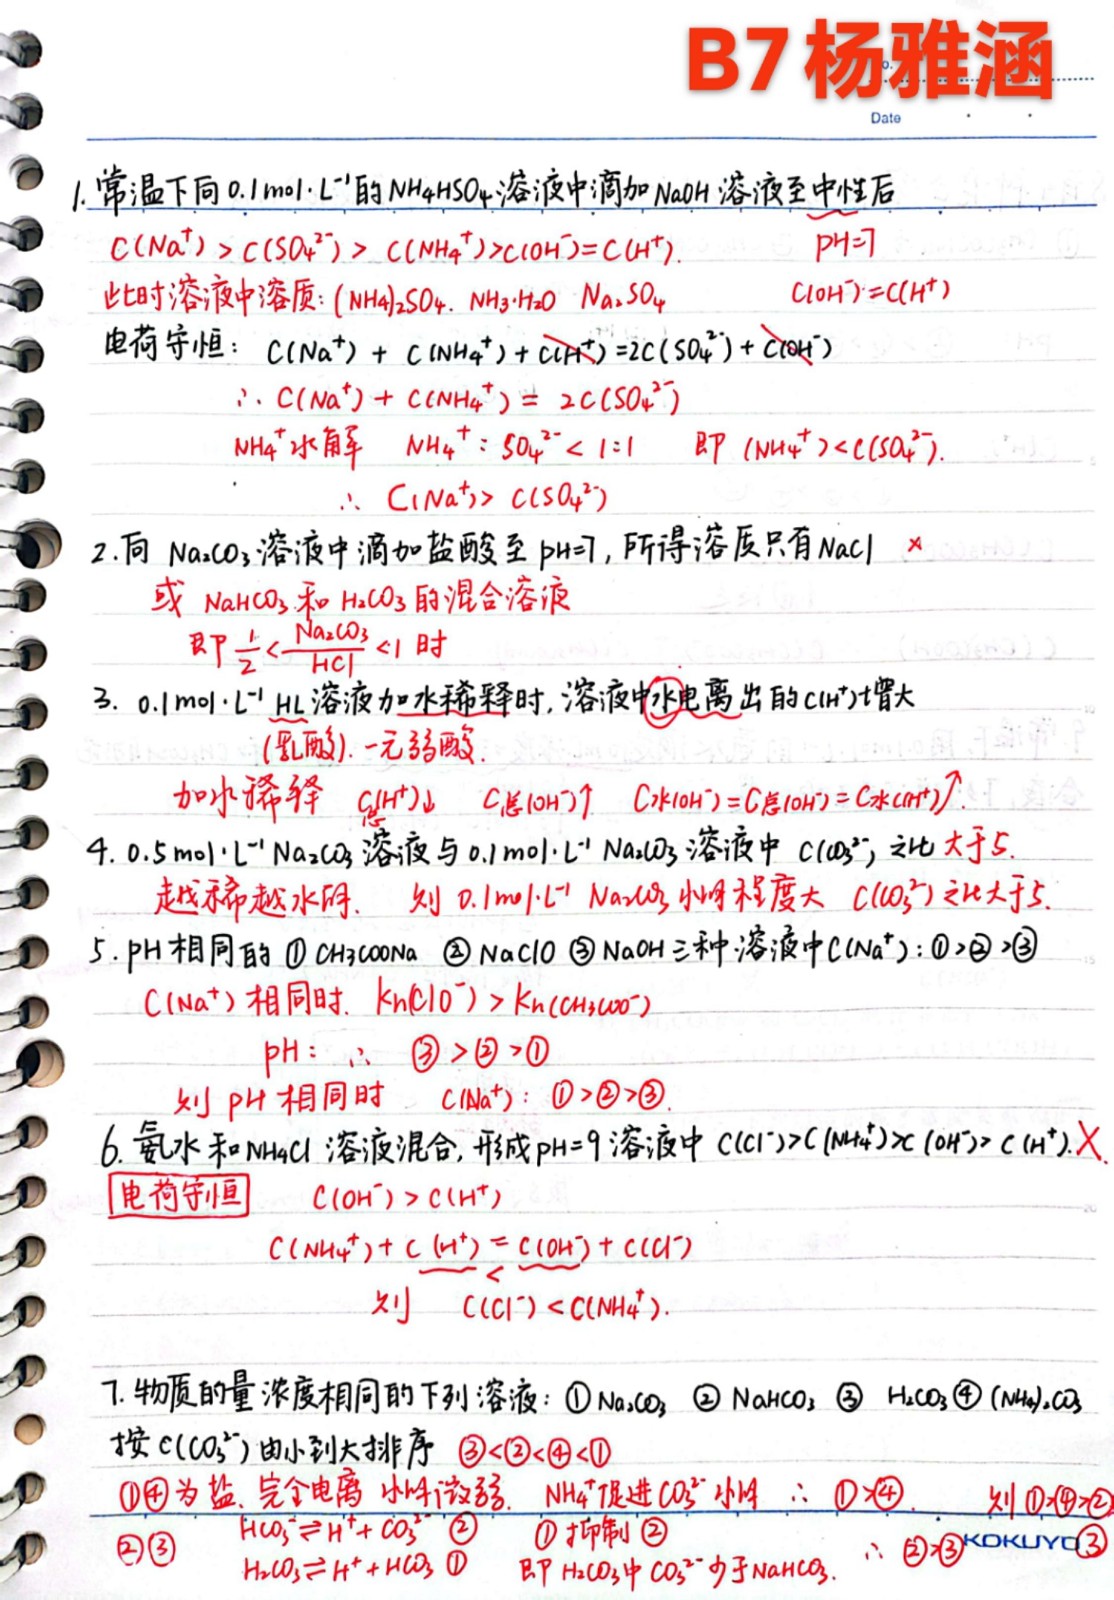 B7杨雅涵
o.
Date
1. 常温下向0.1mol·L⁻¹的NH₄HSO₄溶液中滴加NaOH溶液至中性后
C(Na⁺)>C(SO₄²⁻)>C(NH₄⁺)>C(OH⁻)=C(H⁺). pH=7
此时溶液中溶质:(NH₄)₂SO₄. NH₃·H₂O Na₂SO₄ C(OH⁻)=C(H⁺)
电荷守恒: C(Na⁺)+C(NH₄⁺)+C(H⁺)=2C(SO₄²⁻)+C(OH⁻)
∴ C(Na⁺)+C(NH₄⁺)=2C(SO₄²⁻)
NH₄⁺水解 NH₄⁺:SO₄²⁻<1:1 即(NH₄⁺)<C(SO₄²⁻).
∴ C(Na⁺)>C(SO₄²⁻)
2.向Na₂CO₃溶液中滴加盐酸至pH=7,所得溶质只有NaCl ×
或NaHCO₃和H₂CO₃的混合溶液
即 1/2<Na₂CO₃/HCl<1时
3. 0.1mol·L⁻¹ HL溶液加水稀释时,溶液中水电离出的C(H⁺)增大
(乳酸).一元弱酸.
加水稀释 C总(H⁺)↓ C总(OH⁻)↑ C水(OH⁻)=C总(OH⁻)=C水(H⁺)↑.
4. 0.5mol·L⁻¹ Na₂CO₃溶液与0.1mol·L⁻¹ Na₂CO₃溶液中 C(CO₃²⁻)之比大于5.
越稀越水解. 则0.1mol·L⁻¹ Na₂CO₃水解程度大 C(CO₃²⁻)之比大于5.
5. pH相同的①CH₃COONa ②NaClO ③NaOH三种溶液中C(Na⁺):①>②>③
C(Na⁺)相同时. Kh(ClO⁻)>Kh(CH₃COO⁻)
pH: ∴ ③>②>①
则pH相同时 C(Na⁺):①>②>③.
6. 氨水和NH₄Cl溶液混合,形成pH=9溶液中 C(Cl⁻)>C(NH₄⁺)>C(OH⁻)>C(H⁺). ×
电荷守恒 C(OH⁻)>C(H⁺)
C(NH₄⁺)+C(H⁺)=C(OH⁻)+C(Cl⁻)
<
则 C(Cl⁻)<C(NH₄⁺).
7. 物质的量浓度相同的下列溶液:①Na₂CO₃ ②NaHCO₃ ③H₂CO₃ ④(NH₄)₂CO₃
按C(CO₃²⁻)由小到大排序 ③<②<④<①
①④为盐.完全电离 水解微弱. NH₄⁺促进CO₃²⁻水解 ∴ ①>④. 则①>④>②>③
②③ HCO₃⁻⇌H⁺+CO₃²⁻ ② ①抑制②
H₂CO₃⇌H⁺+HCO₃ ① 即H₂CO₃中CO₃²⁻少于NaHCO₃. ∴ ②>③
KOKUYO